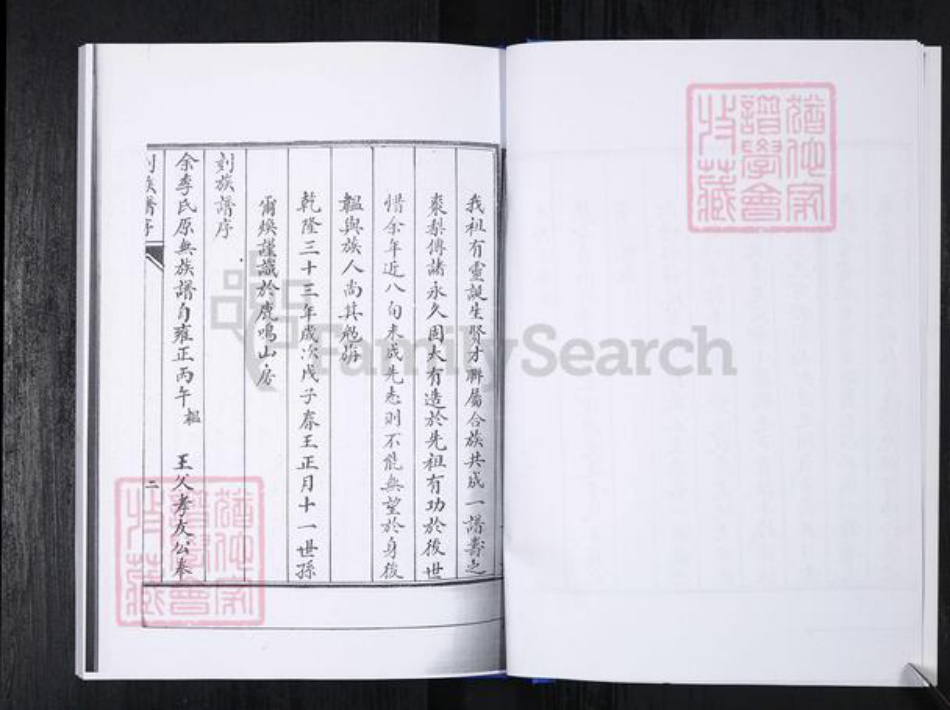 我祖有靈誕生賢才聯屬合族共成一譜壽之
棗梨傳諸永久固大有造於先祖有功於後世
惜余年近八旬未成先志則不能無望於身後
韞與族人尚其勉旃
乾隆三十三年歲次戊子春王正月十一世孫
爾煥謹識於鹿鳴山房
刻族譜序
余李氏原無族譜自雍正丙午韞 王父孝友公奉
刻族譜序
二
FamilySearch